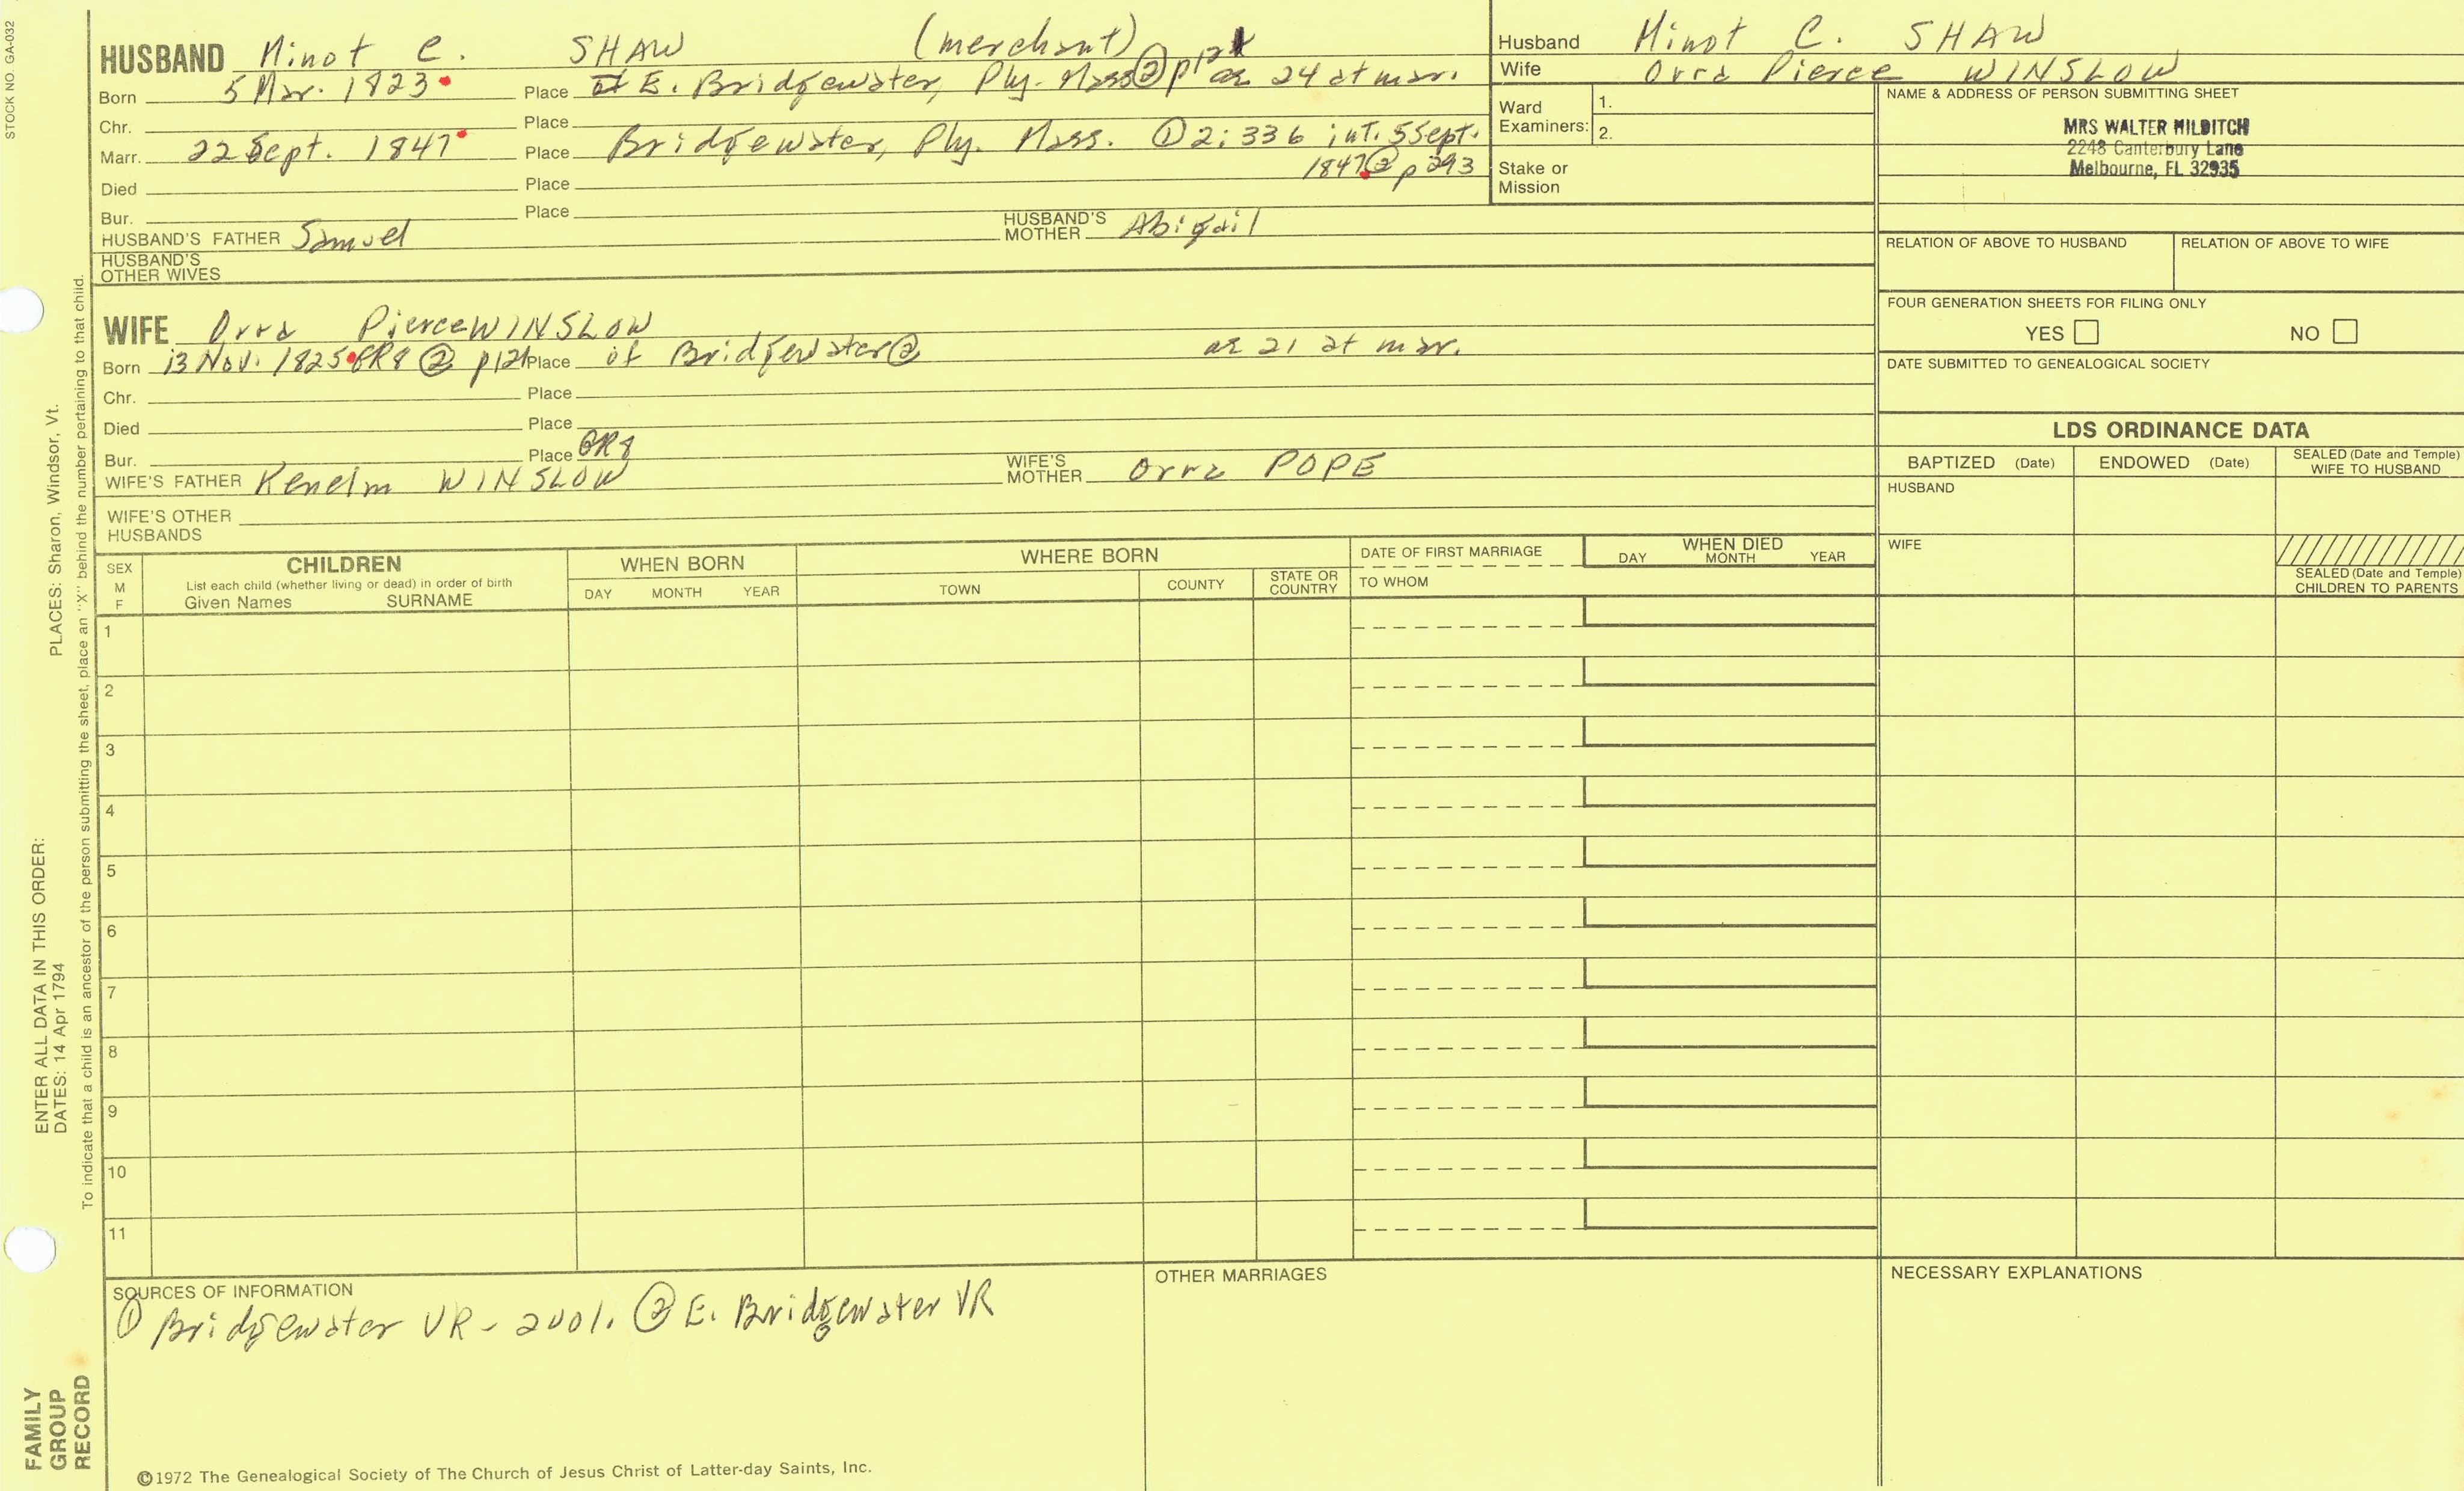 STOCK NO GA-032
HUSBAND Minot C. SHAW (merchant)
Born 5 Mar. 1823 Place E. Bridgewater, Ply. Mass ② p121 ae 24 at mar.
Chr. Place
Marr. 22 Sept. 1847 Place Bridgewater, Ply. Mass. ① 2:336 int. 5 Sept.
1847 ② p 293
Died Place
Bur. Place
HUSBAND'S FATHER Samuel HUSBAND'S MOTHER Abigail
HUSBAND'S
OTHER WIVES
WIFE Orra Pierce WINSLOW
Born 13 Nov. 1825 GR8 ② p121 Place of Bridgewater ② ae 21 at mar.
Chr. Place
Died Place
Bur. Place GR8
WIFE'S FATHER Kenelm WINSLOW WIFE'S MOTHER Orra POPE
WIFE'S OTHER
HUSBANDS
Husband Minot C. SHAW
Wife Orra Pierce WINSLOW
Ward
Examiners: 1.
2.
Stake or
Mission
NAME & ADDRESS OF PERSON SUBMITTING SHEET
MRS WALTER HILDITCH
2248 Canterbury Lane
Melbourne, FL 32935
RELATION OF ABOVE TO HUSBAND RELATION OF ABOVE TO WIFE
FOUR GENERATION SHEETS FOR FILING ONLY
YES NO
DATE SUBMITTED TO GENEALOGICAL SOCIETY
LDS ORDINANCE DATA
BAPTIZED (Date) ENDOWED (Date) SEALED (Date and Temple)
WIFE TO HUSBAND
HUSBAND
WIFE
SEALED (Date and Temple)
CHILDREN TO PARENTS
SEX
M
F
CHILDREN
List each child (whether living or dead) in order of birth
Given Names SURNAME
WHEN BORN
DAY MONTH YEAR
WHERE BORN
TOWN COUNTY STATE OR
COUNTRY
DATE OF FIRST MARRIAGE
TO WHOM
WHEN DIED
DAY MONTH YEAR
1
2
3
4
5
6
7
8
9
10
11
SOURCES OF INFORMATION
① Bridgewater VR - 2vol. ② E. Bridgewater VR
OTHER MARRIAGES
NECESSARY EXPLANATIONS
©1972 The Genealogical Society of The Church of Jesus Christ of Latter-day Saints, Inc.
ENTER ALL DATA IN THIS ORDER:
DATES: 14 Apr 1794 PLACES: Sharon, Windsor, Vt.
To indicate that a child is an ancestor of the person submitting the sheet, place an "X" behind the number pertaining to that child.
FAMILY
GROUP
RECORD